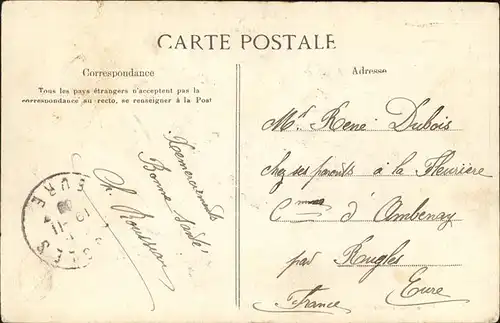 CARTE POSTALE
Correspondance
Tous les pays étrangers n'acceptent pas la
correspondance au recto, se renseigner à la Post
Adresse
Remerciements
Bonne santé
Ch. Rousseau
Mr René Dubois
chez ses parents à la Fleurière
Cne d'Ambenay
par Rugles
Eure
France
EURE